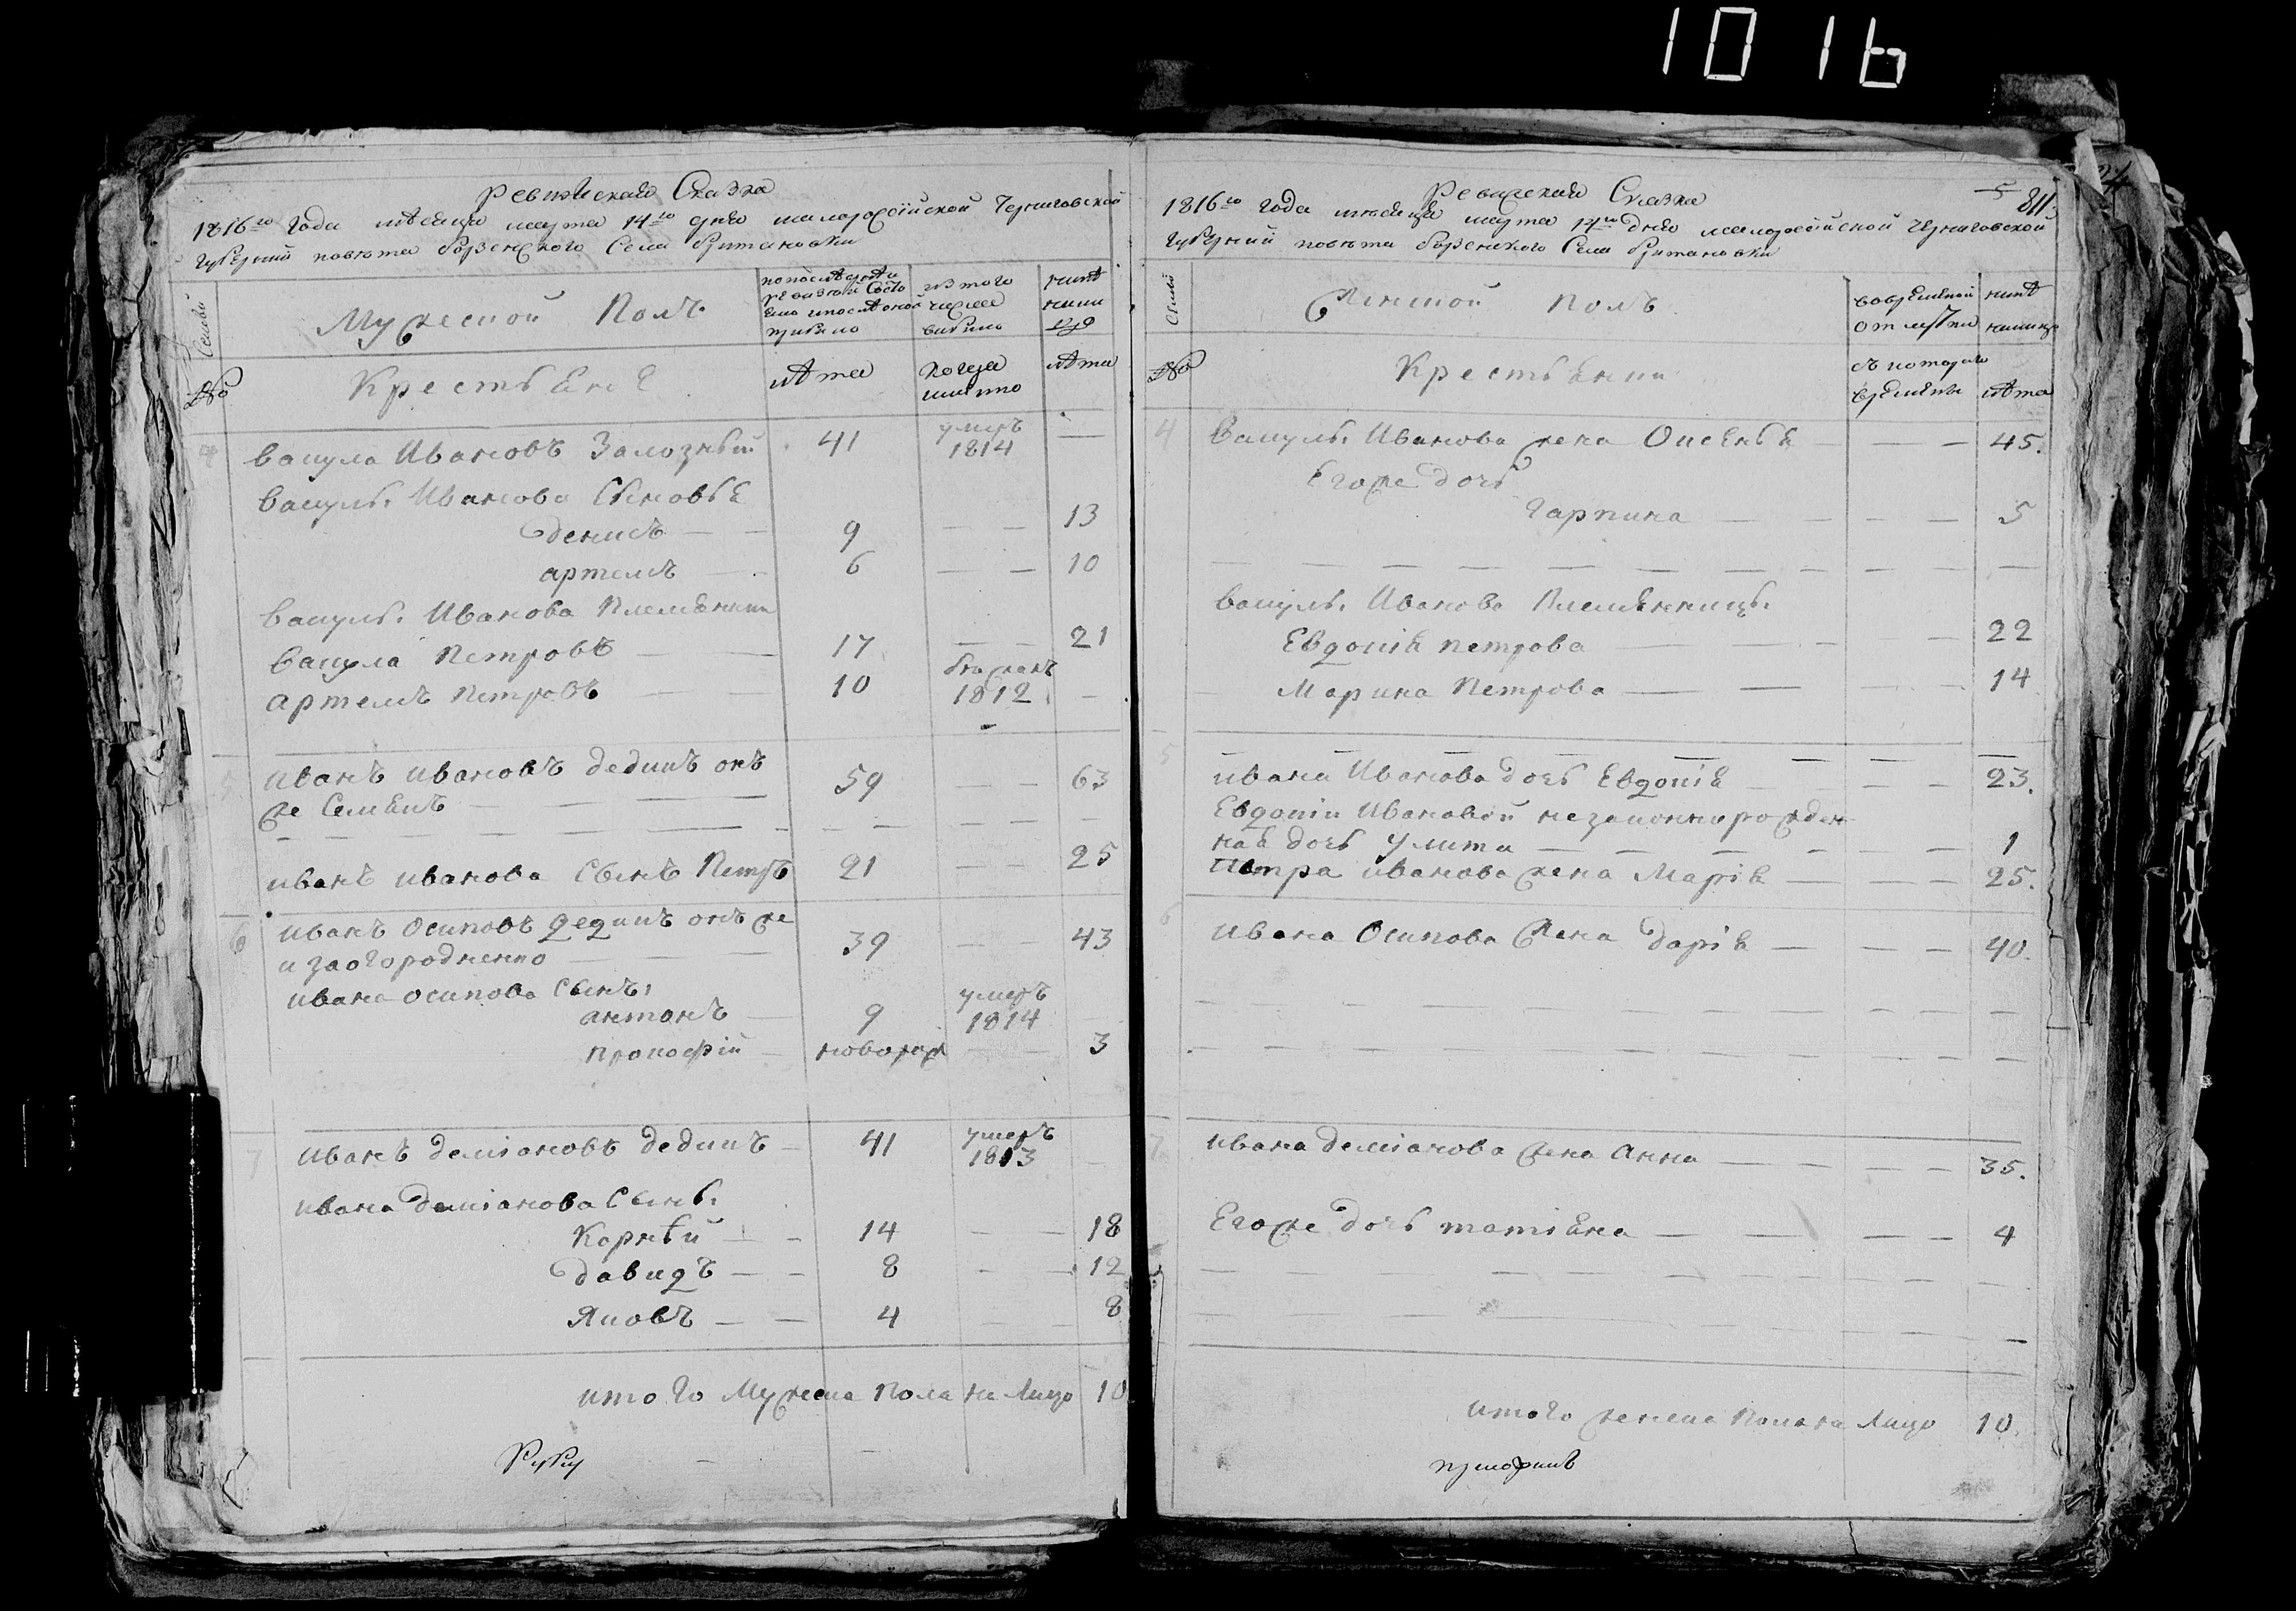 10 16
Ревизская Сказка
1816го года месяца марта 14го дня малороссійской Черниговской
губерний повета борзенского Села британовки
Семьи
Мужеской Полъ
по последнѣй
ревизій Состо
яло и после оной
прибыло
из того
числа
выбыло
нынѣ
на ли
цо
№
Крестьянѣ
лѣта
когда
имянно
лѣта
4
вакула Ивановъ Залозный
41
умеръ
1814
—
вакулы Иванова Сыновья
денисъ
9
13
артемъ
6
10
вакулы Иванова Племянники
вакула Петровъ
17
21
артемъ Петровъ
10
1812
—
5
иванъ ивановъ дедикъ онъ
же Семякъ
59
63
иванъ иванова Сынъ Петръ
21
25
6
иванъ Осиповъ дедикъ онъ же
и заогородненко
39
43
ивана осипова Сынъ:
антонъ
9
умеръ
1814
прокофій
новорож
3
7
иванъ деміановъ дедикъ
41
умеръ
1813
—
ивана деміанова Сынъ:
Корнѣй
14
18
давидъ
8
12
Яковъ
4
8
итого Мужеска Пола на Лицо 10
Руку
5
811
Ревизская Сказка
1816го года месяца марта 14го дня малороссійской Черниговской
губерний повета борзенского Села британовки
Семьи
Женской полъ
во временной
отлучки
нынѣ
на лицо
№
Крестьянки
съ которого
времяни
лѣта
4
вакулы Иванова жена Оксенья
45.
Егоже дочь
Гарпина
5
вакулы Иванова Племянницы
Евдокія петрова
22
Марина Петрова
14
5
ивана Иванова дочь Евдокія
23.
Евдокіи Ивановой незаконнорожден
ная дочь Улита
1
Петра иванова жена Марія
25.
6
ивана Осипова Жена дарія
40.
7
ивана деміанова жена анна
35.
Егоже дочь татіяна
4
итого женска Пола на Лицо 10.
приложилъ